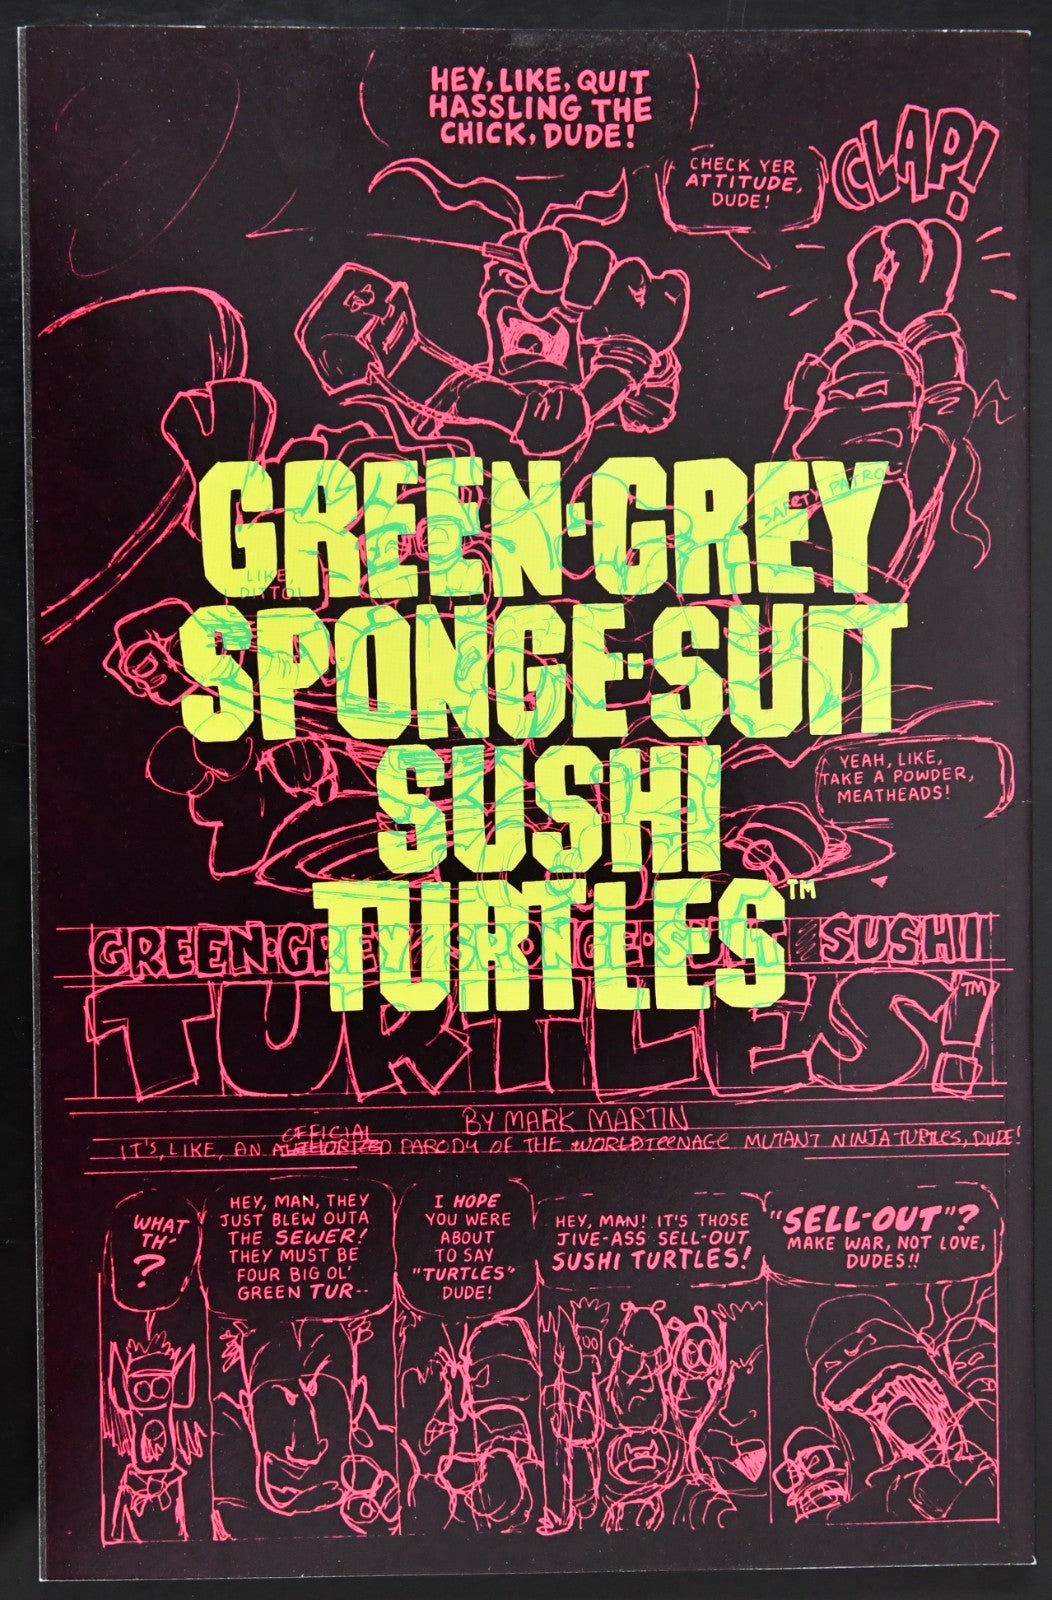 HEY, LIKE, QUIT
HASSLING THE
CHICK, DUDE!
CHECK YER
ATTITUDE,
DUDE!
CLAP!
SAFETY PATROL
GREEN-GREY
LIKE,
DITTO!
SPONGE-SUIT
SUSHI
YEAH, LIKE,
TAKE A POWDER,
MEATHEADS!
TURTLES™
GREEN-GREY SPONGE-SUIT SUSHI
TURTLES!™
BY MARK MARTIN
OFFICIAL
IT'S, LIKE, AN AUTHORIZED PARODY OF THE WORLD TEENAGE MUTANT NINJA TURTLES, DUDE!
WHAT
TH'
?
HEY, MAN, THEY
JUST BLEW OUTA
THE SEWER!
THEY MUST BE
FOUR BIG OL'
GREEN TUR--
I HOPE
YOU WERE
ABOUT
TO SAY
"TURTLES"
DUDE!
HEY, MAN! IT'S THOSE
JIVE-ASS SELL-OUT
SUSHI TURTLES!
"SELL-OUT"?
MAKE WAR, NOT LOVE,
DUDES!!